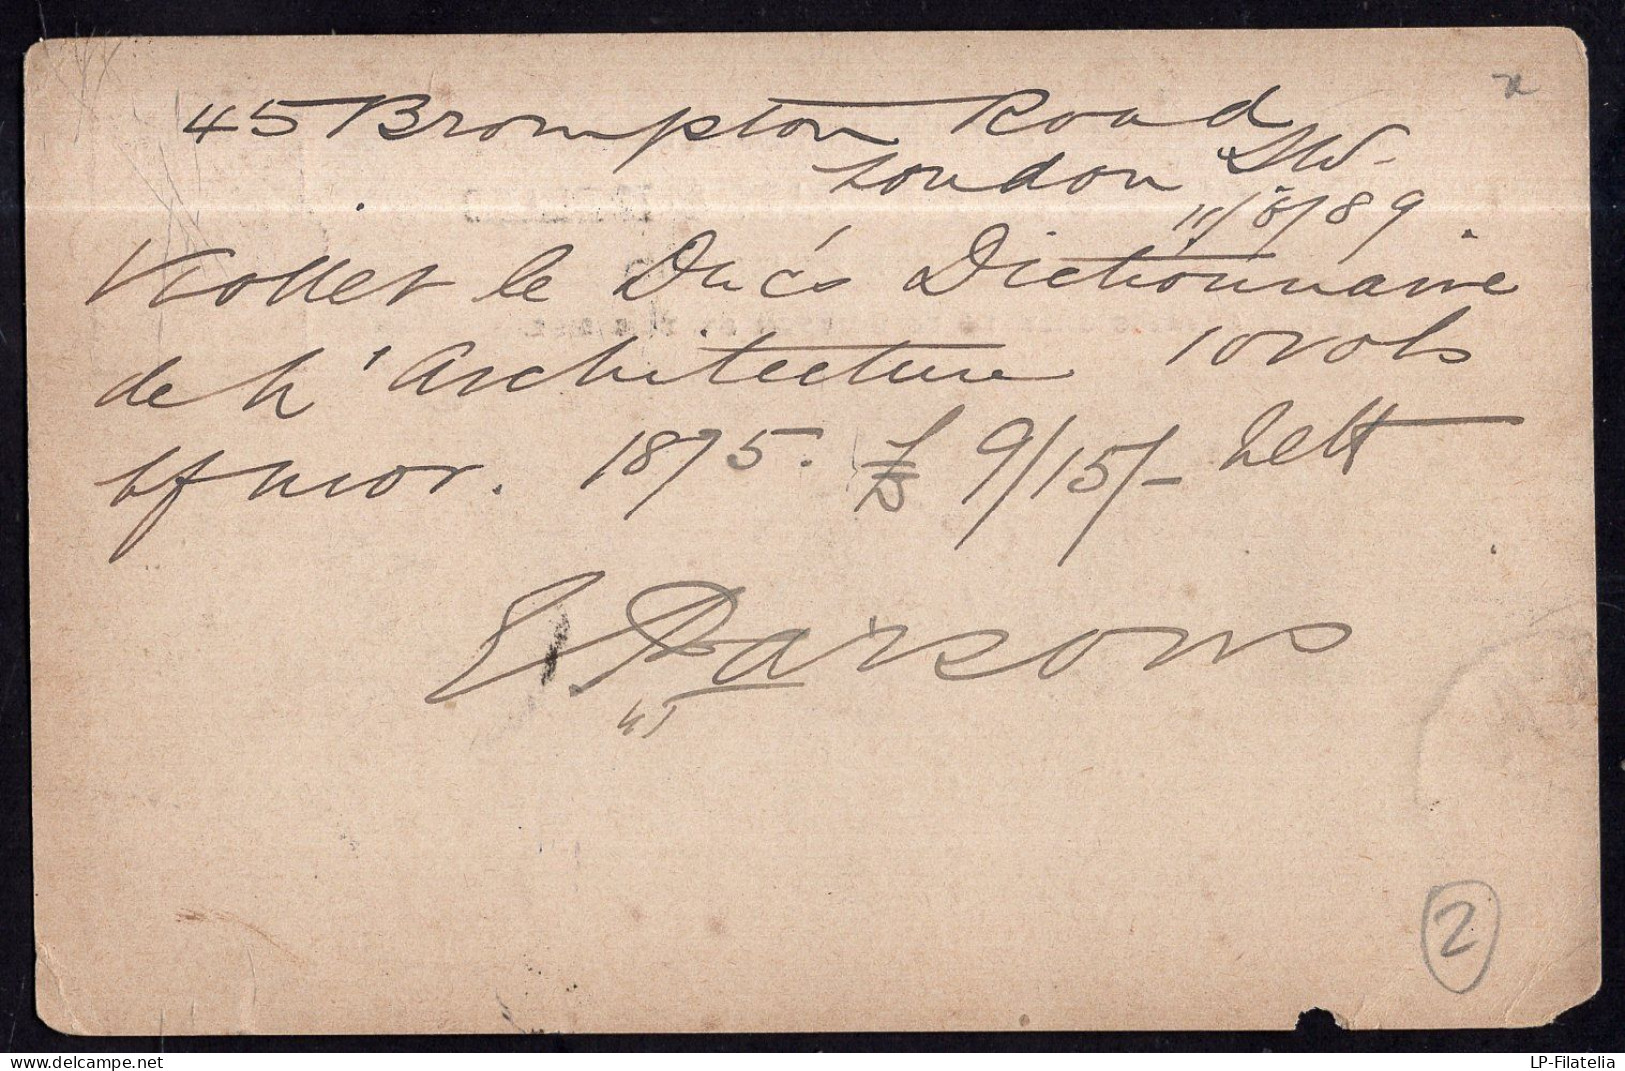 45 Brompton Road
London SW.
11/8/89.
Viollet le Duc's Dictionnaire
de L'Architecture 10 vols
hf mor. 1875. £ 9/15/- nett
E. Parsons
45
2
delcampe.net
LP-Filatelia